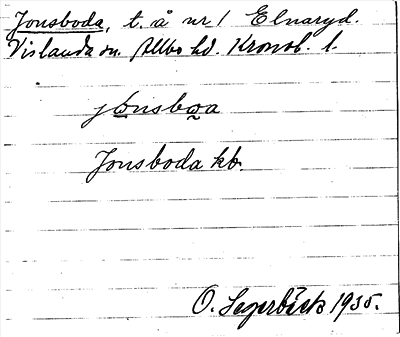 Jonsboda, t. å nr 1 Elnaryd.
Vislanda sn. Allbo hd. Kronob. l.
jonsboa
Jonsboda kb.
O. Segerbäck 1935.